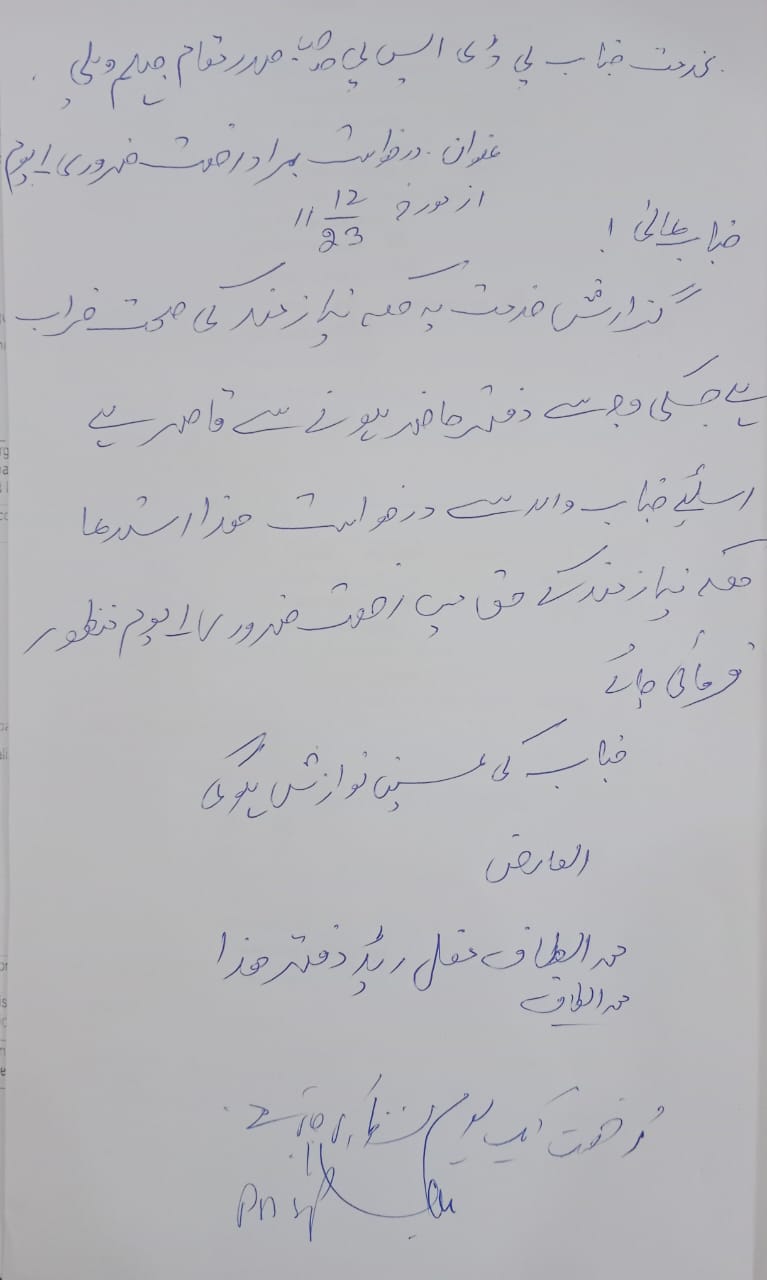 بخدمت جناب پی ڈی ایس پی صاحب صدر مقام جہلم ویلی
عنوان۔ درخواست بمراد رخصت ضروری 1 یوم
از مورخہ 12/11/23
جناب عالی !
گزارش خدمت ہے کہ نیازمند کی صحت خراب
ہے جسکی وجہ سے دفتر حاضر ہونے سے قاصر ہے
اسلئیے جناب والا سے درخواست ھذا استدعا
ھیکہ نیازمند کے حق میں رخصت ضروری 1 یوم منظور
فرمائی جائے
جناب کی عین نوازش ہوگی
العارض
محمد الطاف مغل ریڈر دفتر ھذا
محمد الطاف
رخصت ایک یوم منظور